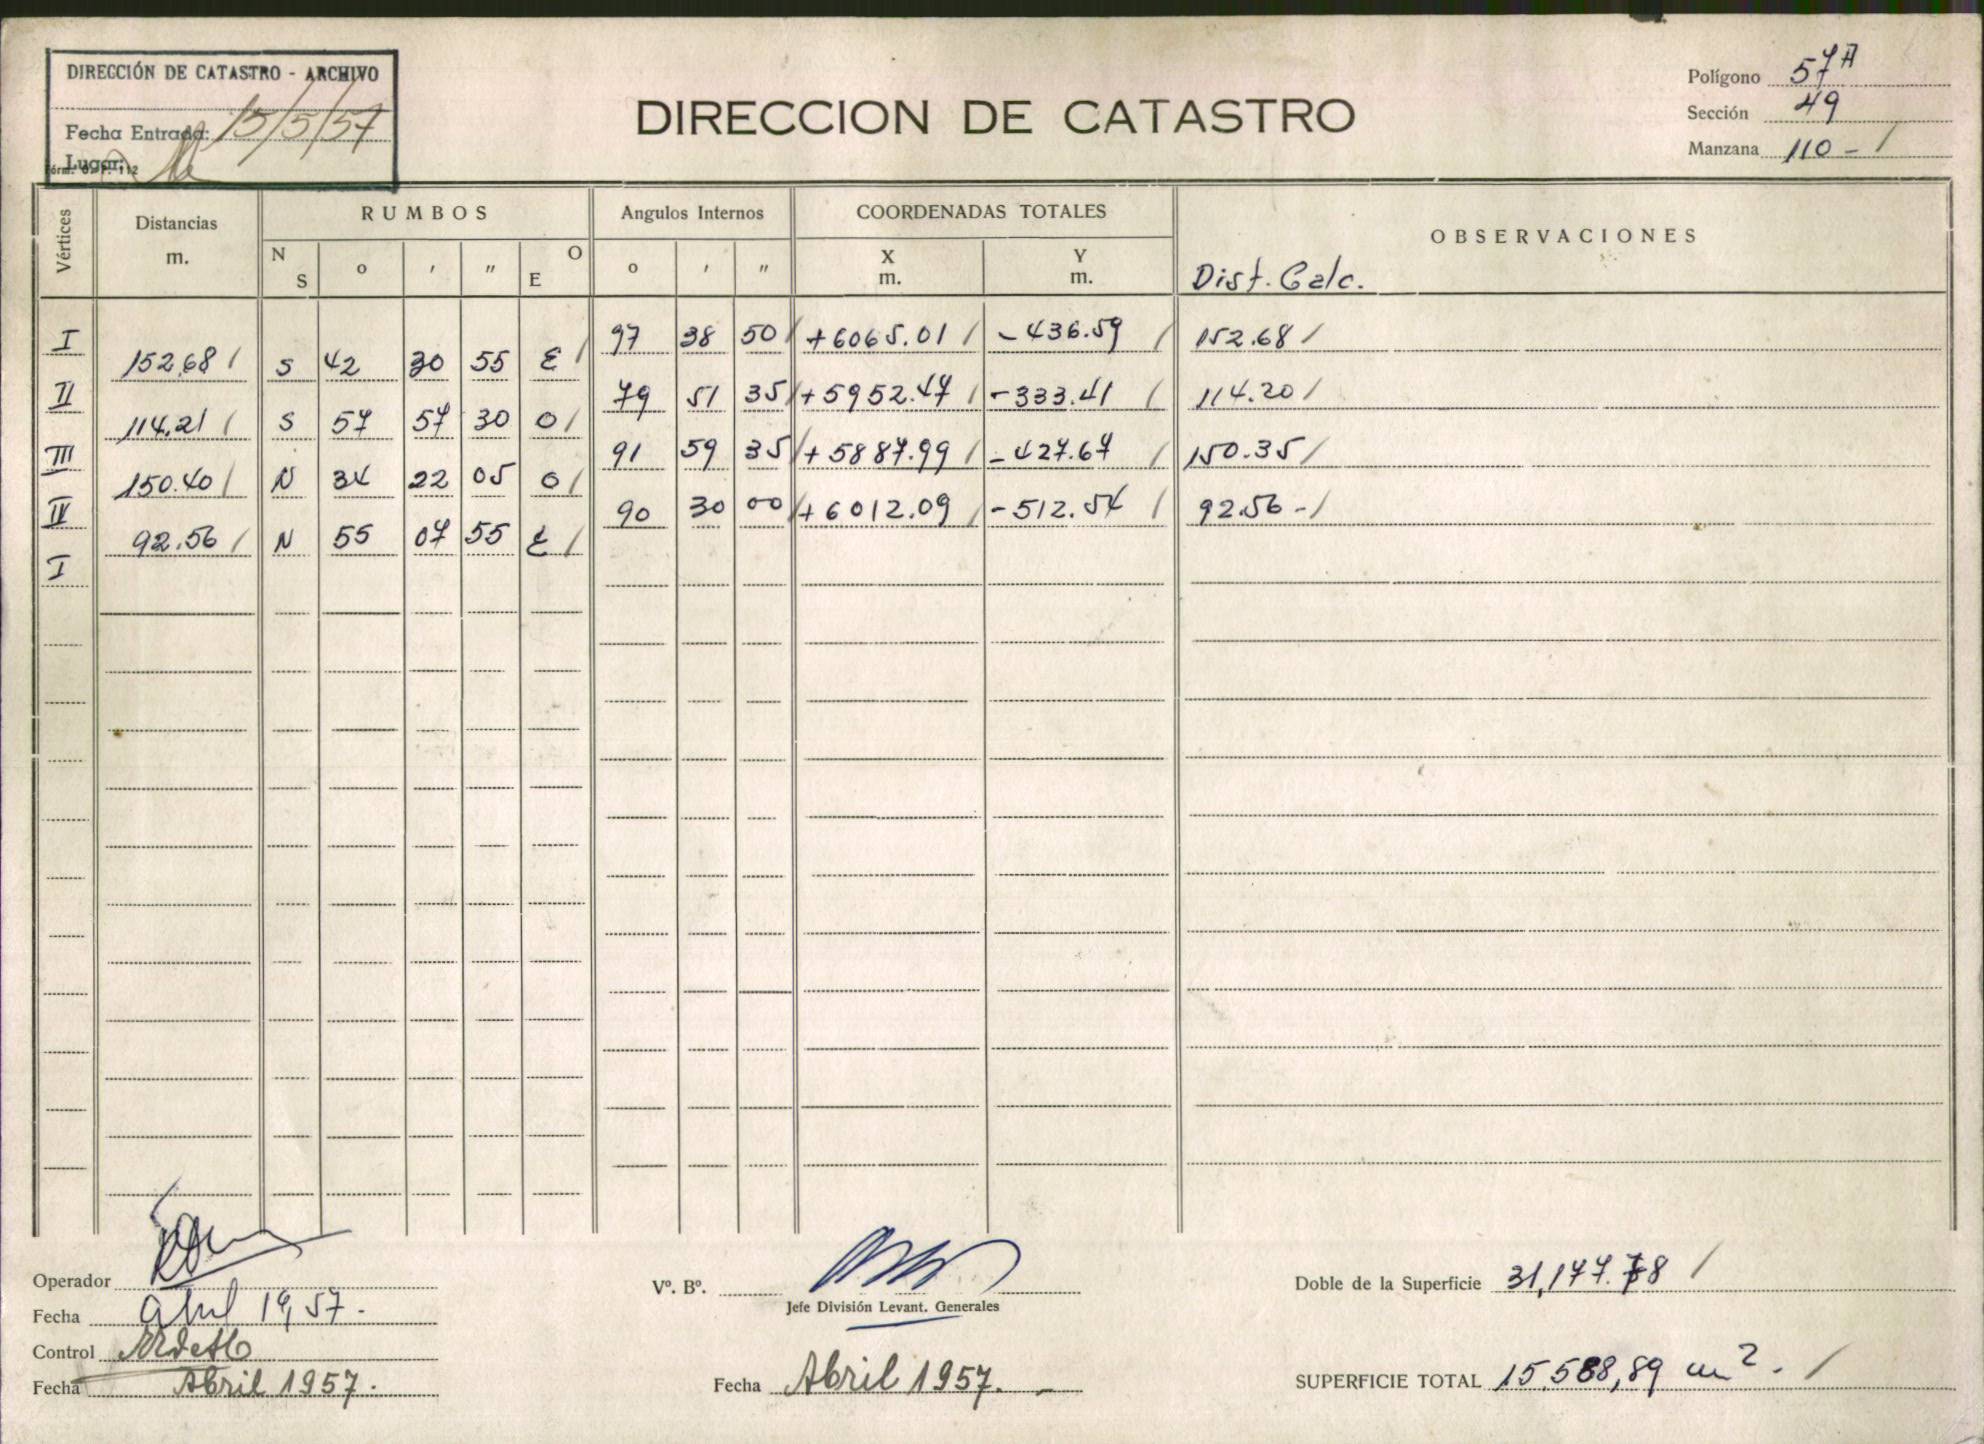 DIRECCIÓN DE CATASTRO - ARCHIVO
Fecha Entrada: 15/5/57
Lugar:
DIRECCION DE CATASTRO
Polígono 57A
Sección 49
Manzana 110 - /
Vértices Distancias m. RUMBOS Angulos Internos COORDENADAS TOTALES OBSERVACIONES
N S o ' " O E o ' " X m. Y m. Dist. Calc.
I 97 38 50 / +6065.01 / -436.59 / 152.68 /
152.68 / S 42 30 55 E /
II 79 51 35 / +5952.47 / -333.41 / 114.20 /
114.21 / S 57 57 30 O /
III 91 59 35 / +5887.99 / -427.67 / 150.35 /
150.40 / N 34 22 05 O /
IV 90 30 00 / +6012.09 / -512.54 / 92.56 - /
92.56 / N 55 07 55 E /
I
Operador
Fecha Abril 19, 57.
Control
Fecha Abril 1957.
Vº. Bº.
Jefe División Levant. Generales
Fecha Abril 1957. -
Doble de la Superficie 31,177.78 /
SUPERFICIE TOTAL 15.588,89 m². /